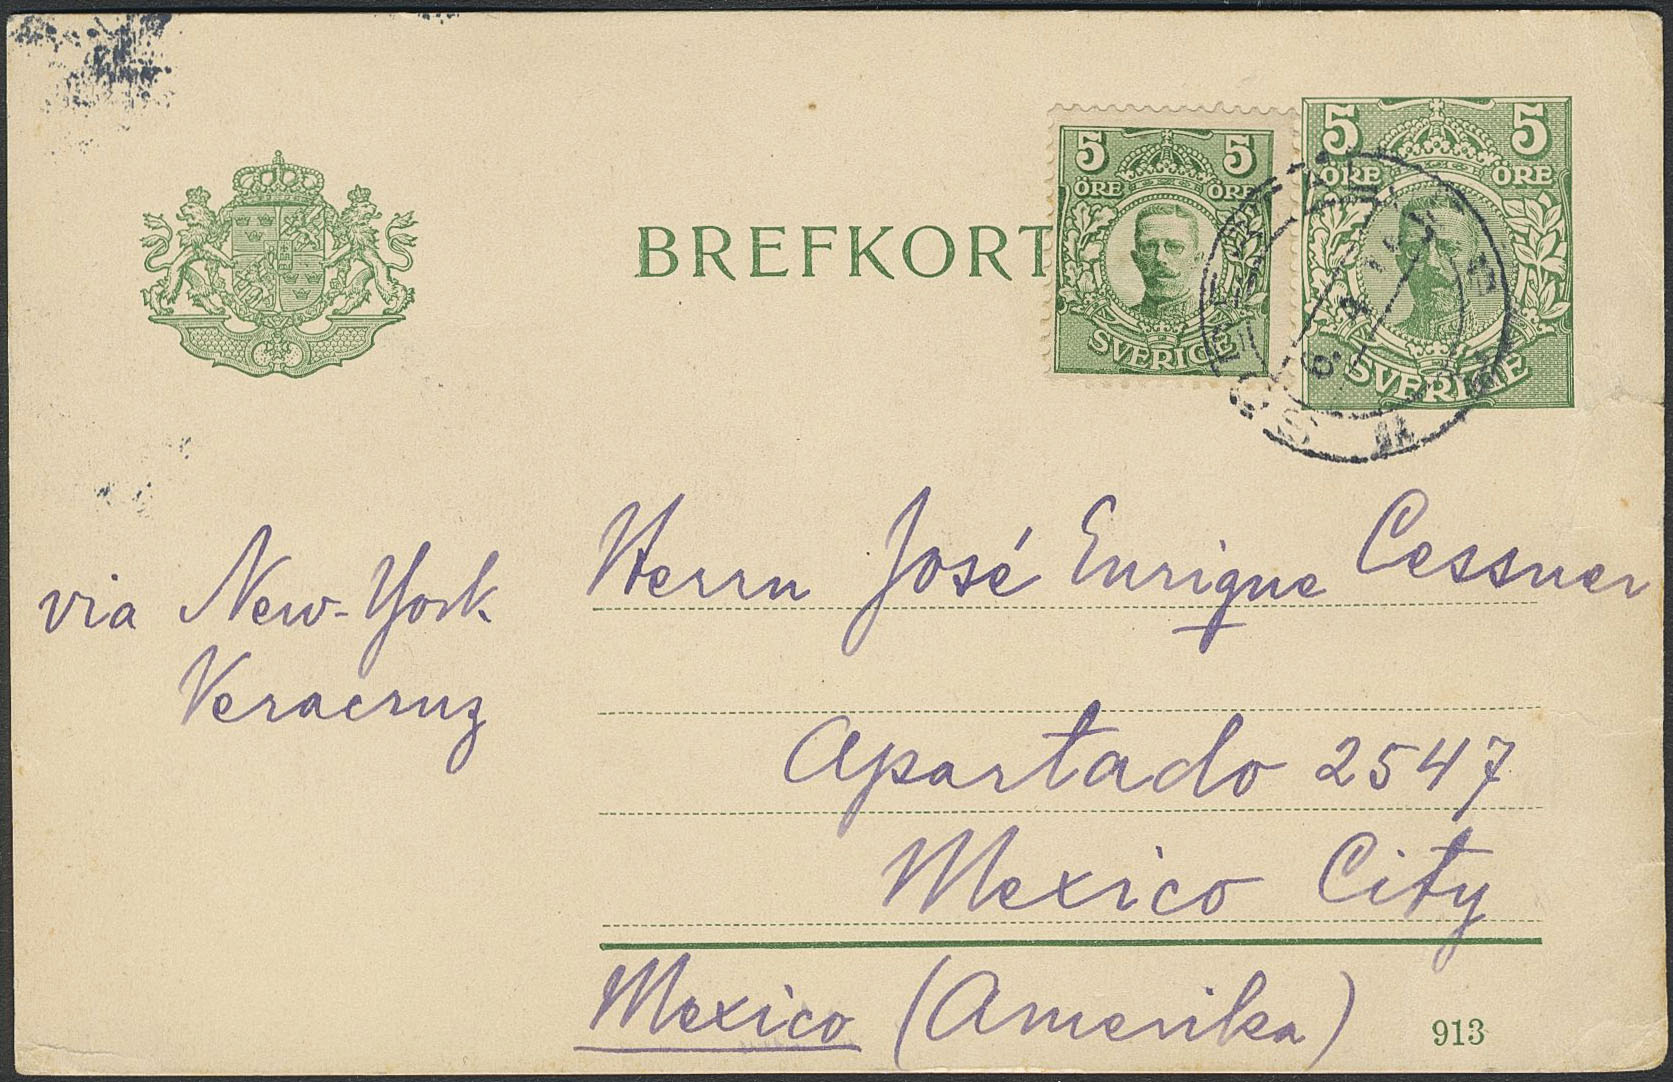 BREFKORT
5 5
ÖRE ÖRE
SVERIGE
5 5
ÖRE ÖRE
SVERIGE
via New-York
Veracruz
Herrn José Enrique Cessner
Apartado 2547
Mexico City
Mexico (Amerika)
913